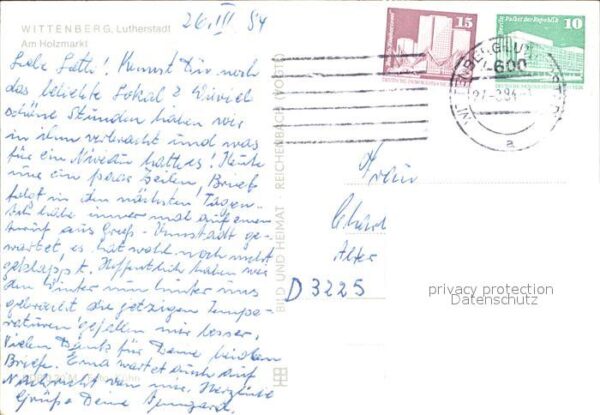 WITTENBERG, Lutherstadt
Am Holzmarkt
26. III 84
Liebe Betti! Kennst Du noch
das beliebte Lokal? Wieviel
schöne Stunden haben wir
in ihm verbracht und was
für ein Niveau hatte es! Heute
nur ein paar Zeilen, Brief
folgt in den nächsten Tagen.
Ich habe immer mal auf einen
Anruf aus Groß-Umstadt ge-
wartet, es hat wohl noch nicht
geklappt. Hoffentlich haben wir
den Winter nun hinter uns
gebracht die jetzigen Tempe-
raturen gefallen mir besser.
Vielen Dank für Deine beiden
Briefe. Erna wartet auch auf
Nachricht von mir. Herzliche
Grüße Deine
BILD UND HEIMAT REICHENBACH (VOGTL)
15
Palast der Republik
10
4600
Frau
D 3225
privacy protection
Datenschutz